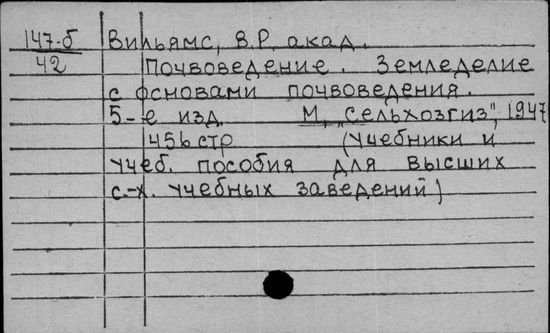 147-б Вильямс, В.Р. акад.
42 Почвоведение. Земледелие
с основами почвоведения.
5-е изд. М, "Сельхозгиз", 1947
456 стр (Учебники и
учеб. пособия для высших
с.-х. учебных заведений)